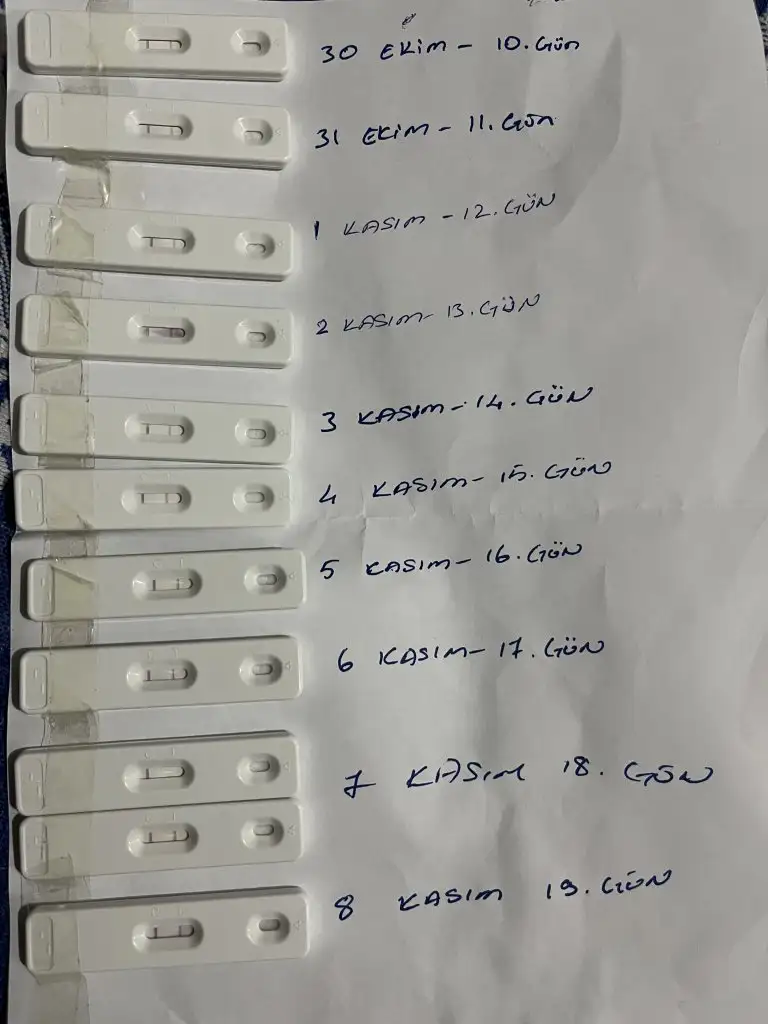 30 EKİM - 10. GÜN
31 EKİM - 11. GÜN
1 KASIM - 12. GÜN
2 KASIM - 13. GÜN
3 KASIM - 14. GÜN
4 KASIM - 15. GÜN
5 KASIM - 16. GÜN
6 KASIM - 17. GÜN
7 KASIM 18. GÜN
8 KASIM 19. GÜN